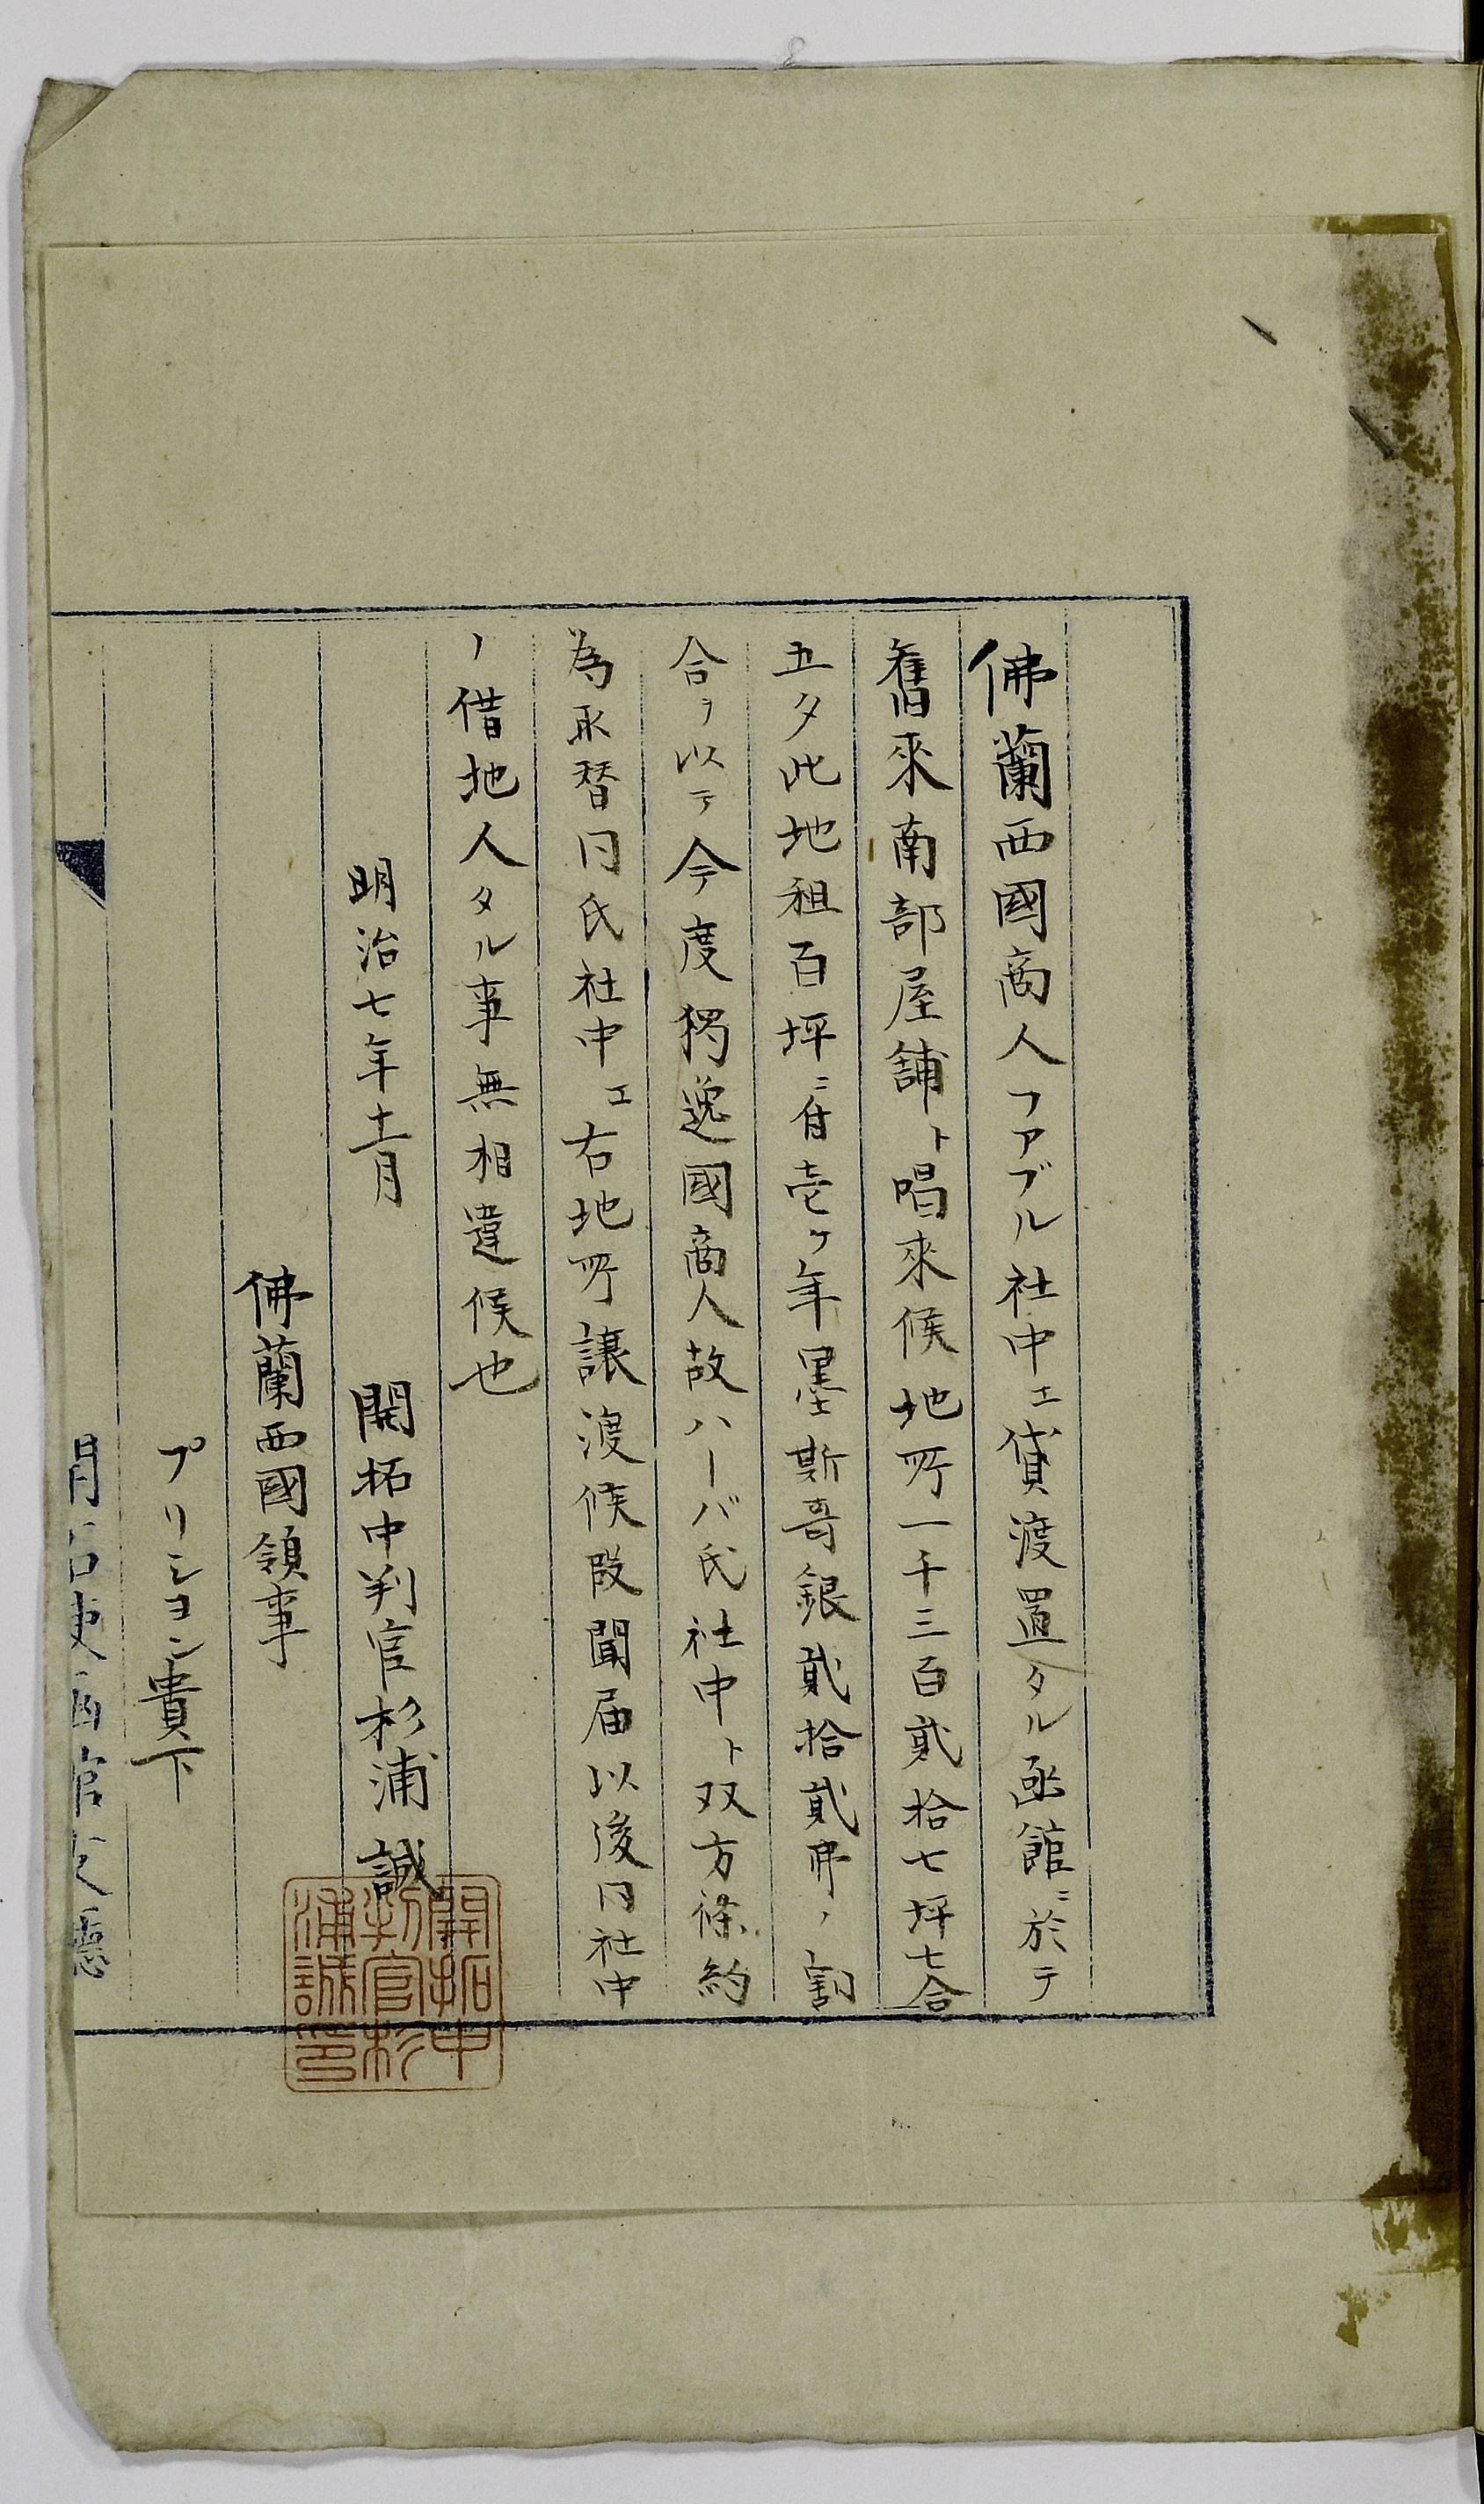 佛蘭西國商人ファブル社中エ貸渡置タル函館ニ於テ
舊來南部屋舗ト唱來候地所一千三百貳拾七坪七合
五夕此地租百坪ニ付壱ケ年墨斯哥銀貳拾貳弗ノ割
合ヲ以テ今度獨逸國商人故ハーバ氏社中ト双方條約
為取替同氏社中エ右地所譲渡候段聞届以後同社中
ノ借地人タル事無相違候也
明治七年十一月
開拓中判官杉浦誠
開拓中
判官杉
浦誠印
佛蘭西國領事
プリシヨン貴下